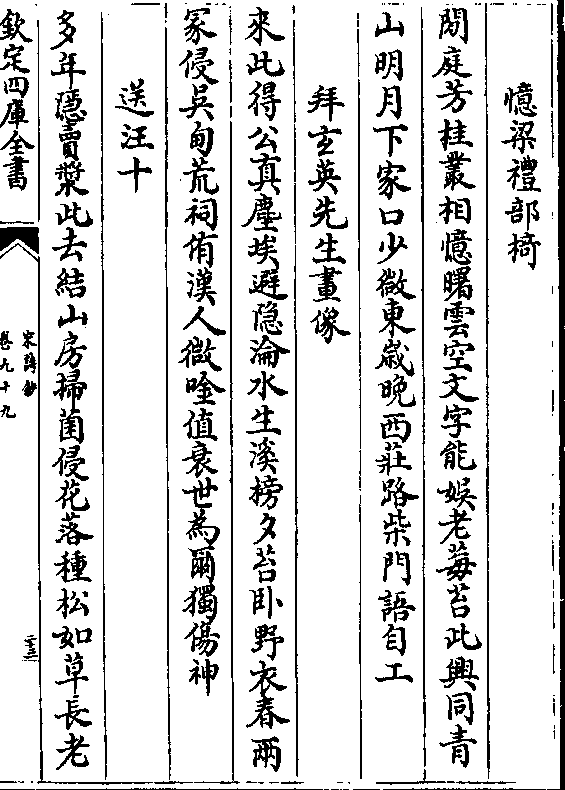 憶梁禮部椅
閑庭芳桂叢相憶曙雲空文字能娛老莓苔此興同青
山明月下家口少微東嵗晚西莊路柴門語自工
拜玄英先生畫像
來此得公真塵埃避隐淪水生溪榜夕苔卧野衣春兩
冢侵吳甸荒祠侑漢人微唫值衰世為爾獨傷神
送汪十
多年隱賣漿此去結山房掃菌侵花落種松如草長老
欽定四庫全書
宋詩鈔
卷九十九
三